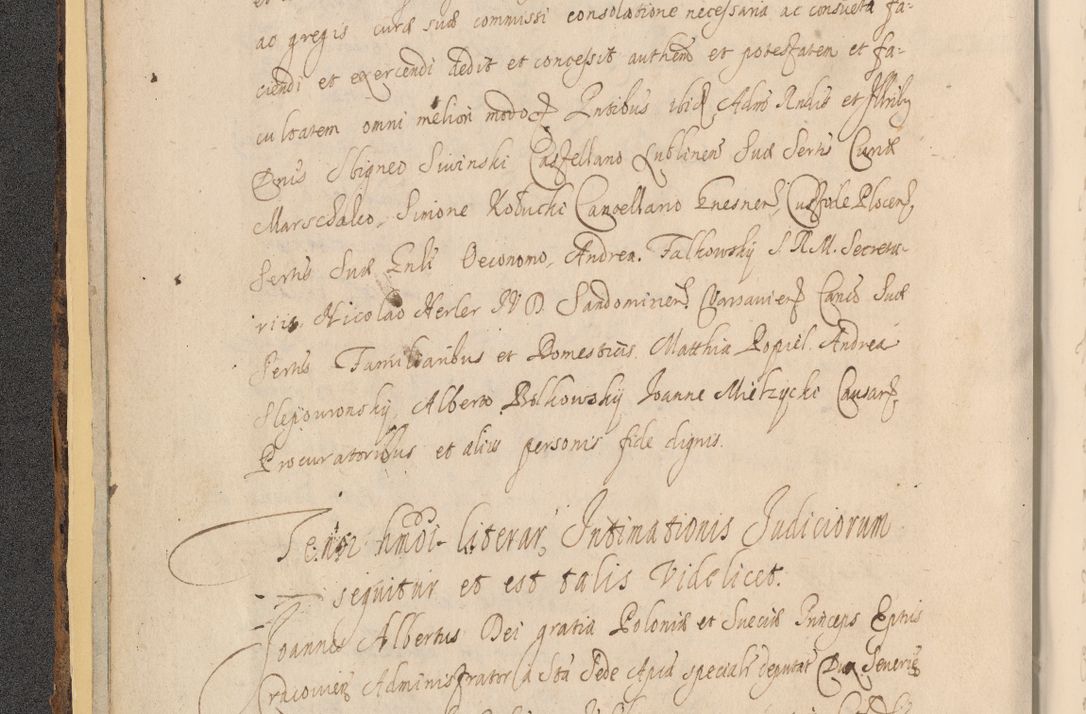 ac gregis curæ suæ commissi consolatione necessaria ac consueta fa-
ciendi et exercendi dedit et concessit authem et potestatem et fa-
cultatem omni meliori modo Pntibus ibid Adm Rndis et Illribus
Dnis Sbigneo Siwinski Castellano Lublinen Suæ Sertis Curiæ
Marschalco, Simone Kobuchi Cancellario Gnesnen, Custode Plocen,
Sertis Suæ Gnli Oeconomo, Andrea Falkowsky S.R.M. Secreta-
riis, Nicolao Herler IVD Sandomirien Varsavien Canco Suæ
Sertis Familiaribus et Domesticis. Matthia Popiel. Andrea
Slepowronsky, Alberto Bolkowsky Joanne Mietzycki Causar
Procuratoribus et aliis personis fide dignis.
Tenor hmoi literar, Intimationis Judiciorum
sequitur et est talis Videlicet.
Joannes Albertus Dei gratia Poloniæ et Sueciæ Princeps Eptus
Cracovien Administrator a Sta Sede Aplca specialr deputat Dux Severiæ